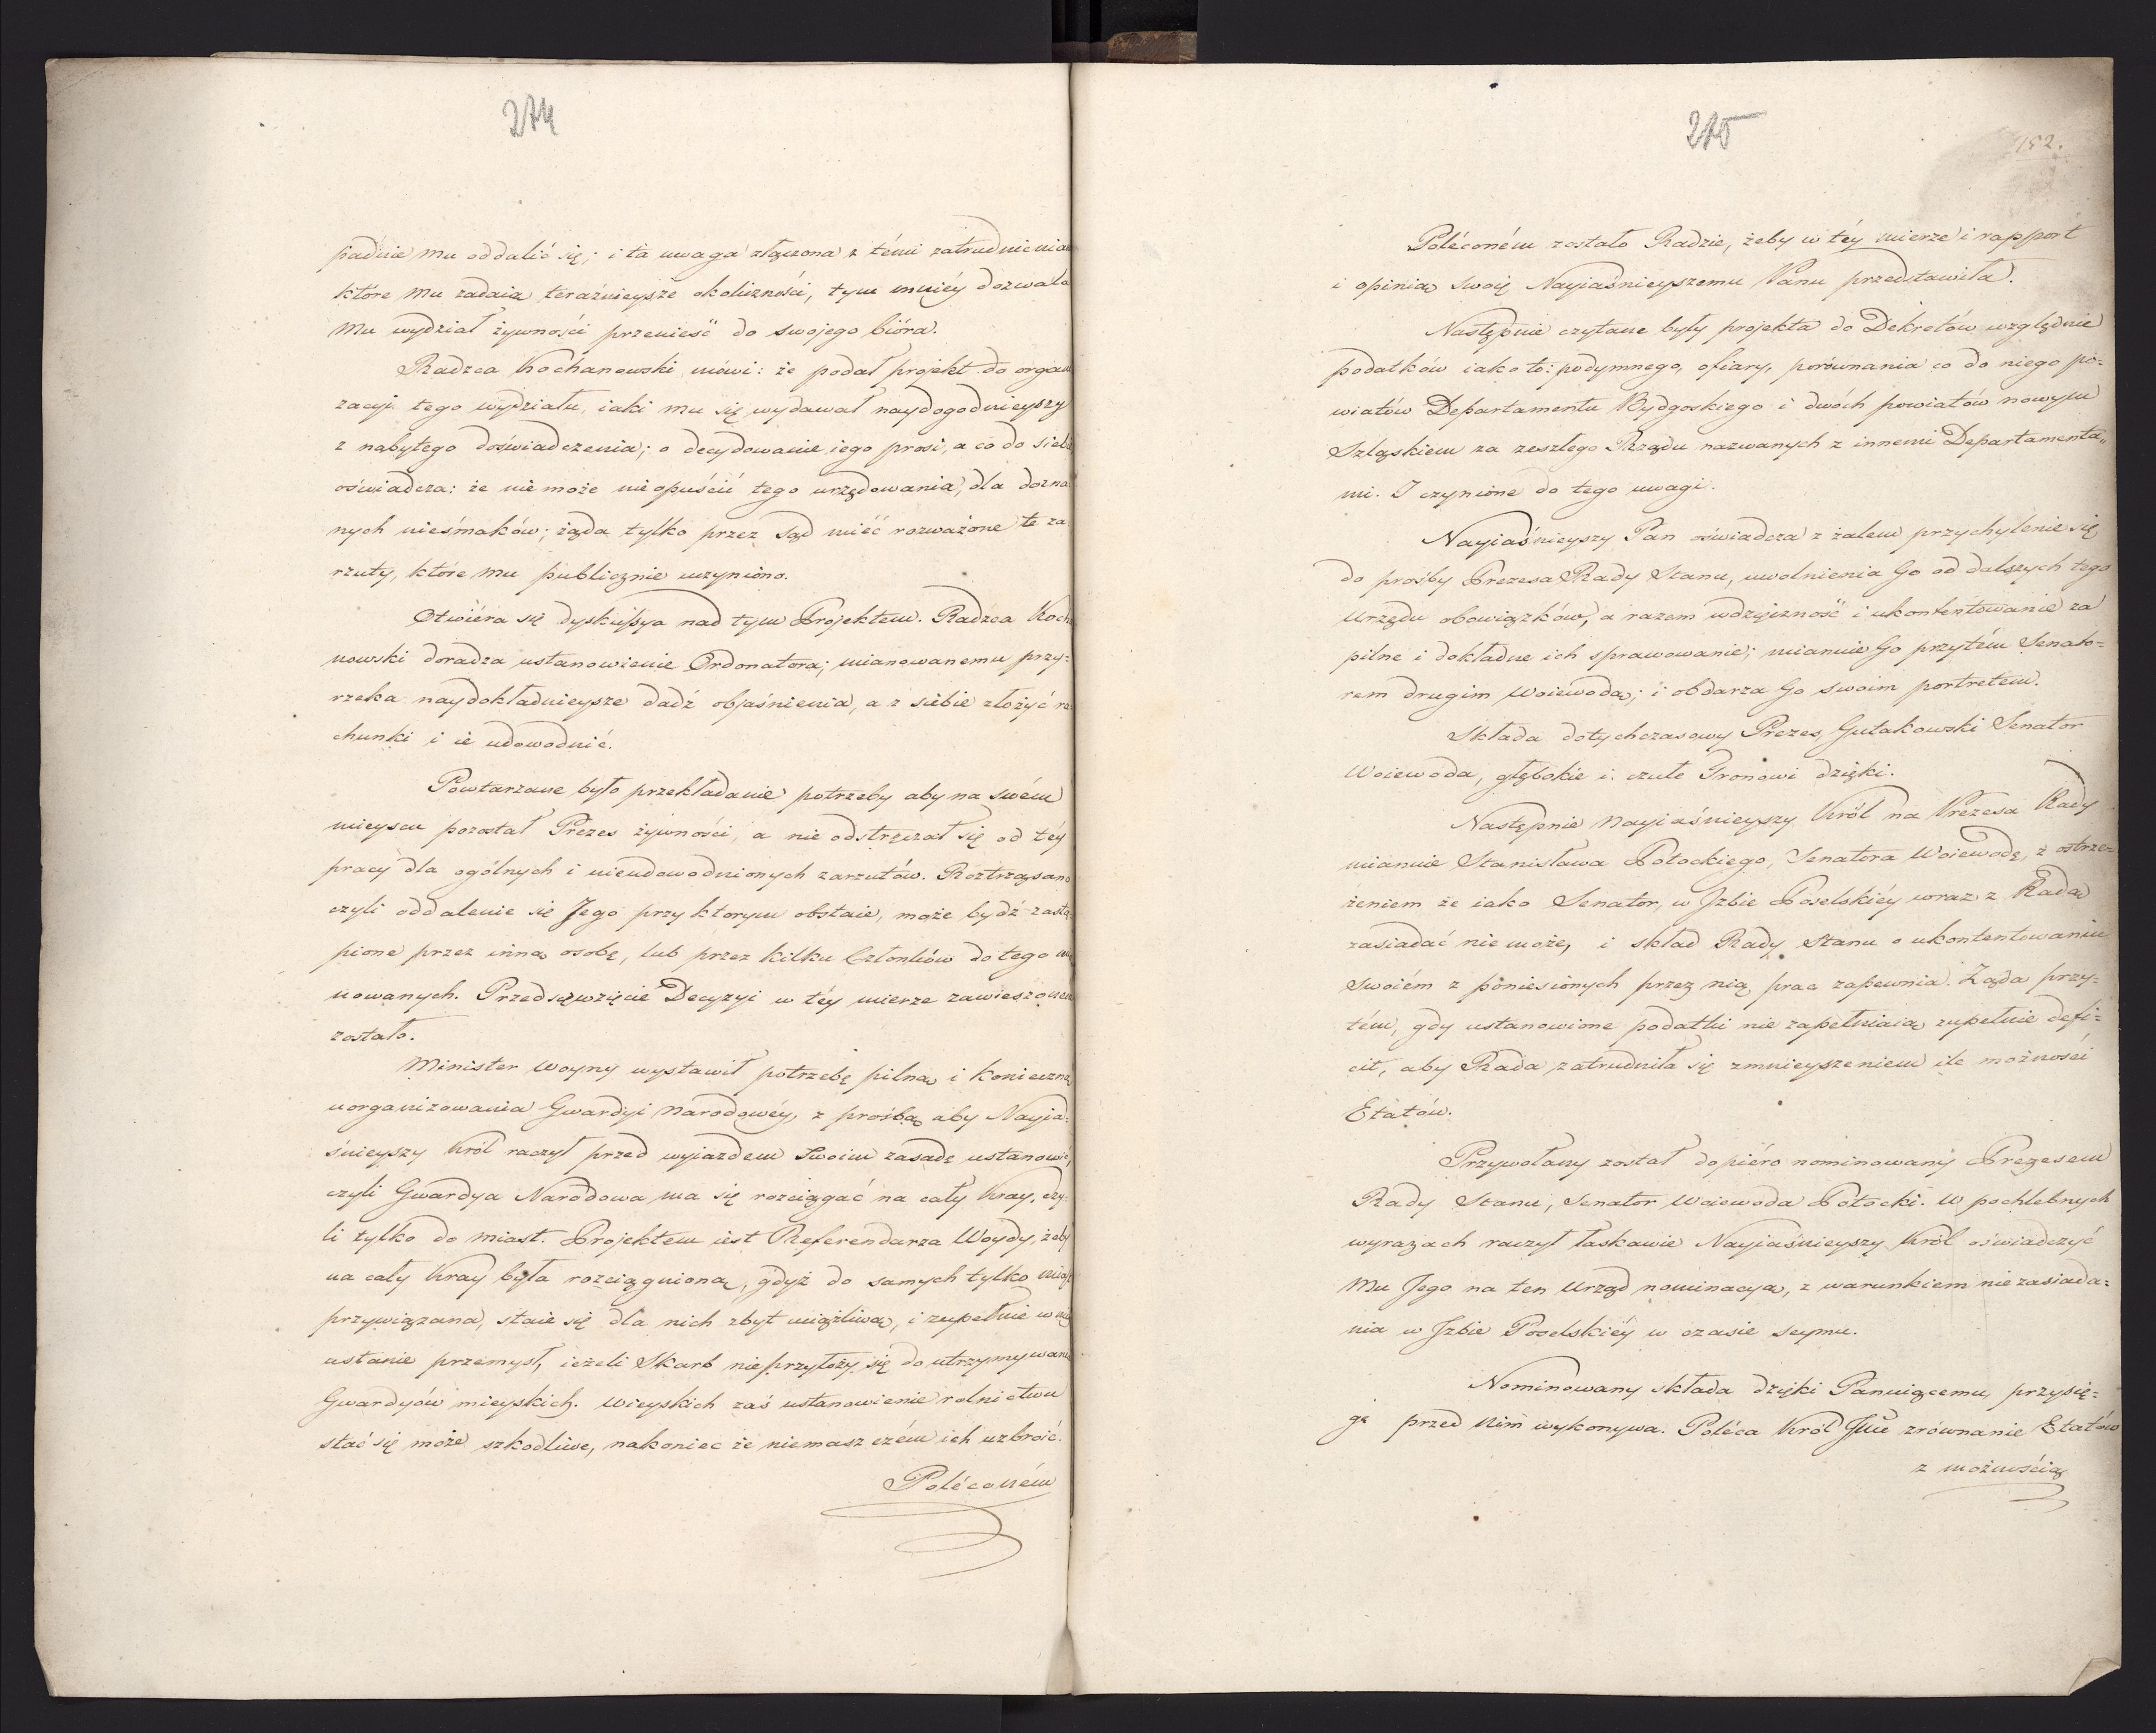 274
padnie mu oddalić się; i ta uwaga złączona z témi zatrudnienia
które mu zadaią teraźnieysze okoliczności, tym mniéy dozwala
mu wydział żywności przenieść do swojego bióra.
Radzca Kochanowski mówi: że podał projekt do organi
zacyi tego wydziału, iaki mu się wydawał naydogodnieyszy
z nabytego doświadczenia; o decydowanie iego prosi, a co do siebie
oświadcza: że nie może nie opuścić tego urzędowania, dla dozna
nych niesmaków; żąda tylko przez Sąd mieć rozważone te za
rzuty, które mu publicznie uczyniono.
Otwiéra się dyskussya nad tym Projektem. Radzca Kocha
nowski doradza ustanowienie Ordonatora; mianowanemu przy=
rzeka naydokładnieysze dadź objaśnienia, a z siebie złożyć ra
chunki i ie udowodnić.
Powtarzane było przekładanie potrzeby aby na swém
mieyscu pozostał Prezes żywności, a nie odstręczał się od téy
pracy dla ogólnych i nieudowodnionych zarzutów. Roztrząsano
czyli oddalenie się Jego przy ktorym obstaie, może bydź zastą
pione przez inną osobę, lub przez kilku Członków do tego mia
nowanych. Przedsięwzięcie Decyzyi w téy mierze zawieszonem
zostało.
Minister Woyny wystawił potrzebę pilną i konieczną
uorganizowania Gwardyi Narodowéy, z prośbą aby Nayia=
śnieyszy Król raczył przed wyjazdem Swoim zasadę ustanowić,
czyli Gwardya Narodowa ma się rozciągać na cały Kray, czy=
li tylko do miast. Projektem iest Referendarza Woydy, żeby
na cały Kray była rozciągniona, gdyż do samych tylko miast
przywiązana, staie się dla nich zbyt uciążliwa, i zupełnie w nich
ustanie przemysł, ieżeli Skarb nieprzyłoży się do utrzymywania
Gwardyów mieyskich. Wieyskich zaś ustanowienie rolnictwu
stać się może szkodliwe, nakoniec że niemasz czém ich uzbroić.
Poléconém
275
152.
Poléconém zostało Radzie, żeby w téy mierze i rapport
i opinią swoię Nayiaśnieyszemu Panu przedstawiła.
Następnie czytane były projekta do Dekretów względnie
podatków iako to: podymnego, ofiary, porównania co do niego po=
wiatów Departamentu Bydgoskiego i dwóch powiatów nowym
Szląskiem za zeszłego Rządu nazwanych z innemi Departamenta„
mi. I czynione do tego uwagi.
Nayiaśnieyszy Pan oświadcza z żalem przychylenie się
do prośby Prezesa Rady Stanu, uwolnienia Go od dalszych tego
Urzędu obowiązków, a razem wdzięczność i ukontentowanie za
pilne i dokładne ich sprawowanie; mianuie Go przytém Senato=
rem drugim Woiewodą; i obdarza Go swoim portretem.
Składa dotychczasowy Prezes Gutakowski Senator
Woiewoda, głębokie i czułe Tronowi dzięki.
Następnie Nayiaśnieyszy Król na Prezesa Rady
mianuie Stanisława Potockiego, Senatora Woiewodę, z ostrze=
żeniem że iako Senator, w Izbie Poselskiéy wraz z Radą
zasiadać nie może, i skład Rady Stanu o ukontentowaniu
Swoiém z poniesionych przez nią prac zapewnia. Żąda przy=
tém, gdy ustanowione podatki nie zapełniaią zupełnie defi=
cit, aby Rada zatrudniła się zmnieyszeniem ile możności
Etatów.
Przywołany został dopiéro nominowany Prezesem
Rady Stanu, Senator Woiewoda Potocki. W pochlebnych
wyrazach raczył łaskawie Nayiaśnieyszy Król oświadczyć
Mu Jego na ten Urząd nominacyą, z warunkiem nie zasiada=
nia w Izbie Poselskiéy w czasie Seymu.
Nominowany składa dzięki Panuiącemu, przysię=
gę przed Nim wykonywa. Poléca Król Jmć zrównanie Etatów
z możnością